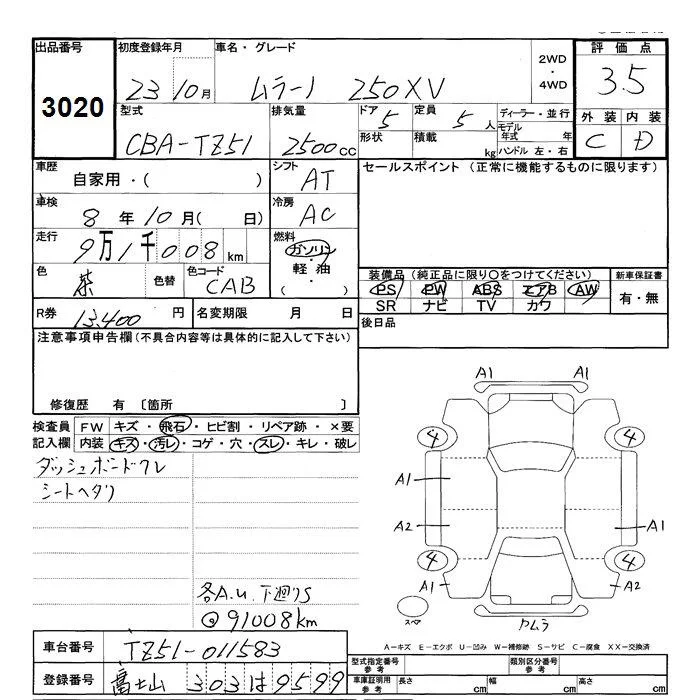 出品番号
3020
初度登録年月
23 10月
車名・グレード
ムラーノ 250XV
2WD
・
4WD
評価点
3.5
型式
CBA-TZ51
排気量
2500cc
ドア
5
形状
定員
5人
積載
kg
ディーラー・並行
モデル
年式 年
ハンドル 左・右
外装 内装
C D
車歴
自家用・( )
シフト
AT
セールスポイント (正常に機能するものに限ります)
車検
8年10月( 日)
冷房
AC
走行
9万1千008km
燃料
ガソリン
・
軽油
( ・ )
色
茶
色替
色コード
CAB
装備品 (純正品に限り○をつけてください)
新車保証書
PS PW ABS エアB AW
有・無
SR ナビ TV カワ
R券 13,400円
名変期限 月 日
後日品
注意事項申告欄(不具合内容等は具体的に記入して下さい)
修復歴 有 〔箇所 〕
検査員
記入欄
FW キズ・飛石・ヒビ割・リペア跡・×要
内装 キズ・汚レ・コゲ・穴・スレ・キレ・破レ
ダッシュボードワレ
シートヘタリ
各A.U.下廻りS
◎91008km
A1 A1
4 4
A1
A2 A1
4 4
A1 A2
スペア
カムラ
A-キズ E-エクボ U-凹み W-補修跡 S-サビ C-腐食 XX-交換済
車台番号
TZ51-011583
登録番号
富士山 303 は 9599
型式指定番号
参考
類別区分番号
参考
車庫証明用
参考
長さ cm
幅 cm
高さ cm